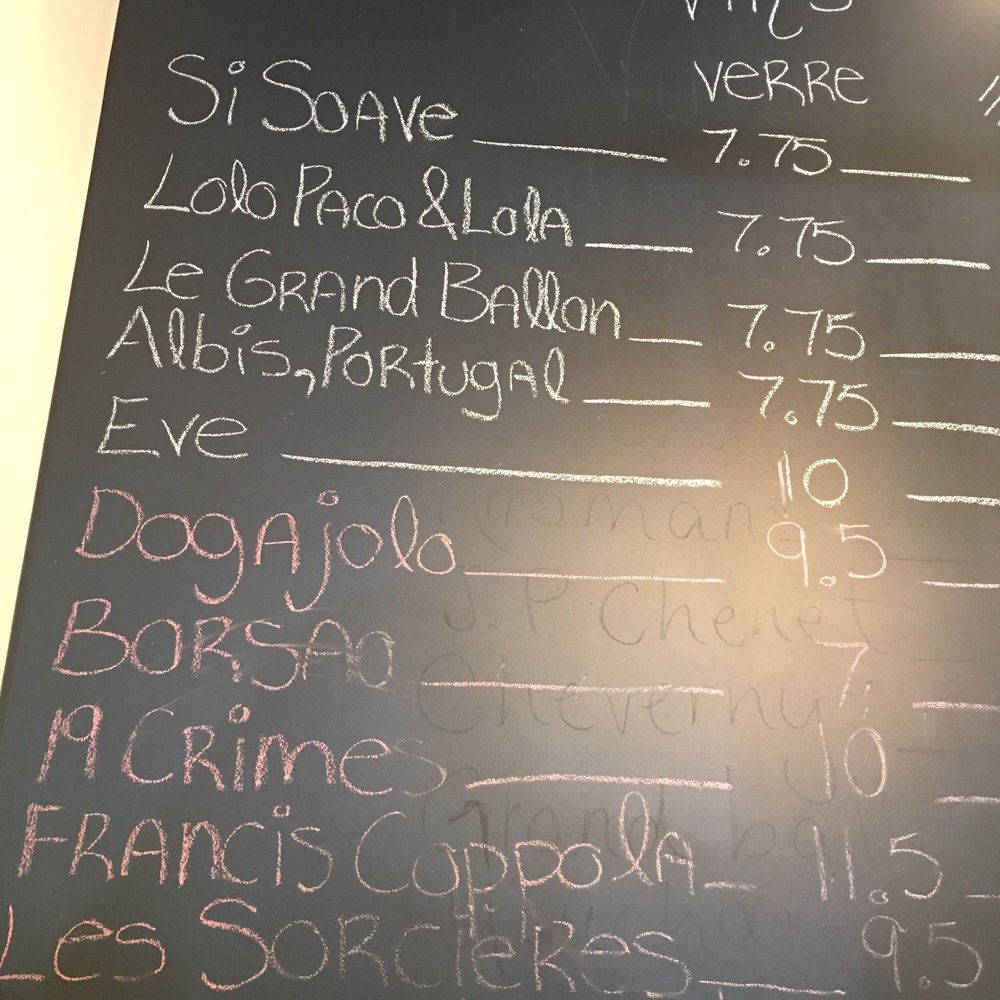 Vins
VERRE
Si SOAVE 7.75
Lolo PACO & LolA 7.75
Le GRANd BAllon 7.75
Albis, PORtugAl 7.75
Eve 10
DogAjolo 9.5
Romani
J.P. Chenet
BORSAO 7
Cheverny
19 CRimes 10
Grand ba
FRANCis CoppolA 11.5
Les SORCieRes 9.5